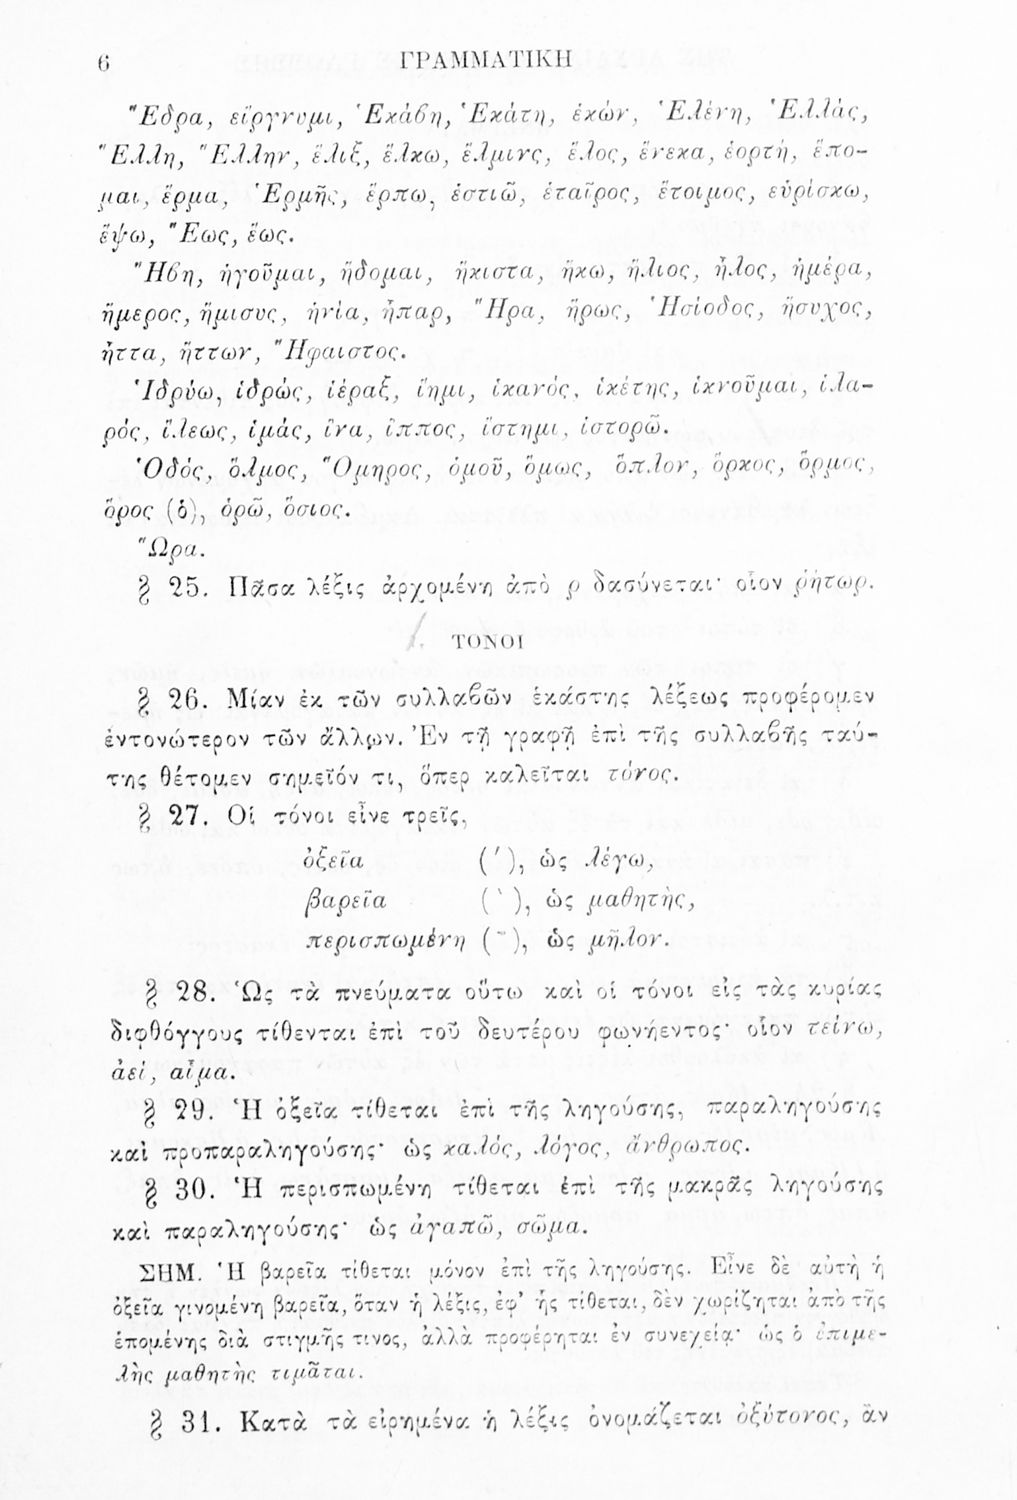 6 ΓΡΑΜΜΑΤΙΚΗ
Ἕδρα, εἵργνυμι, Ἑκάβη, Ἑκάτη, ἑκών, Ἑλένη, Ἑλλάς,
Ἕλλη, Ἕλλην, ἕλιξ, ἕλκω, ἕλμινς, ἕλος, ἕνεκα, ἑορτή, ἕπο-
μαι, ἕρμα, Ἑρμῆς, ἕρπω, ἑστιῶ, ἑταῖρος, ἕτοιμος, εὑρίσκω,
ἕψω, Ἕως, ἕως.
Ἥβη, ἡγοῦμαι, ἥδομαι, ἥκιστα, ἥκω, ἥλιος, ἧλος, ἡμέρα,
ἥμερος, ἥμισυς, ἡνία, ἧπαρ, Ἥρα, ἥρως, Ἡσίοδος, ἥσυχος,
ἧττα, ἥττων, Ἥφαιστος.
Ἱδρύω, ἱδρώς, ἱέραξ, ἵημι, ἱκανός, ἱκέτης, ἱκνοῦμαι, ἱλα-
ρός, ἵλεως, ἱμάς, ἵνα, ἵππος, ἵστημι, ἱστορῶ.
Ὁδός, ὅλμος, Ὅμηρος, ὁμοῦ, ὅμως, ὅπλον, ὅρκος, ὅρμος,
ὅρος (ὁ), ὁρῶ, ὅσιος.
Ὥρα.
§ 25. Πᾶσα λέξις ἀρχομένη ἀπὸ ρ δασύνεται· οἷον ῥήτωρ.
ΤΟΝΟΙ
§ 26. Μίαν ἐκ τῶν συλλαβῶν ἑκάστης λέξεως προφέρομεν
ἐντονώτερον τῶν ἄλλων. Ἐν τῇ γραφῇ ἐπὶ τῆς συλλαβῆς ταύ-
της θέτομεν σημεῖόν τι, ὅπερ καλεῖται τόνος.
§ 27. Οἱ τόνοι εἶνε τρεῖς,
ὀξεῖα (´), ὡς λέγω,
βαρεῖα (`), ὡς μαθητὴς,
περισπωμένη (῀), ὡς μῆλον.
§ 28. Ὡς τὰ πνεύματα οὕτω καὶ οἱ τόνοι εἰς τὰς κυρίας
διφθόγγους τίθενται ἐπὶ τοῦ δευτέρου φωνήεντος· οἷον τείνω,
ἀεί, αἷμα.
§ 29. Ἡ ὀξεῖα τίθεται ἐπὶ τῆς ληγούσης, παραληγούσης
καὶ προπαραληγούσης· ὡς καλός, λόγος, ἄνθρωπος.
§ 30. Ἡ περισπωμένη τίθεται ἐπὶ τῆς μακρᾶς ληγούσης
καὶ παραληγούσης· ὡς ἀγαπῶ, σῶμα.
ΣΗΜ. Ἡ βαρεῖα τίθεται μόνον ἐπὶ τῆς ληγούσης. Εἶνε δὲ αὐτὴ ἡ
ὀξεῖα γινομένη βαρεῖα, ὅταν ἡ λέξις, ἐφ' ἧς τίθεται, δὲν χωρίζηται ἀπὸ τῆς
ἑπομένης διὰ στιγμῆς τινος, ἀλλὰ προφέρηται ἐν συνεχείᾳ· ὡς ὁ ἐπιμε-
λὴς μαθητὴς τιμᾶται.
§ 31. Κατὰ τὰ εἰρημένα ἡ λέξις ὀνομάζεται ὀξύτονος, ἂν